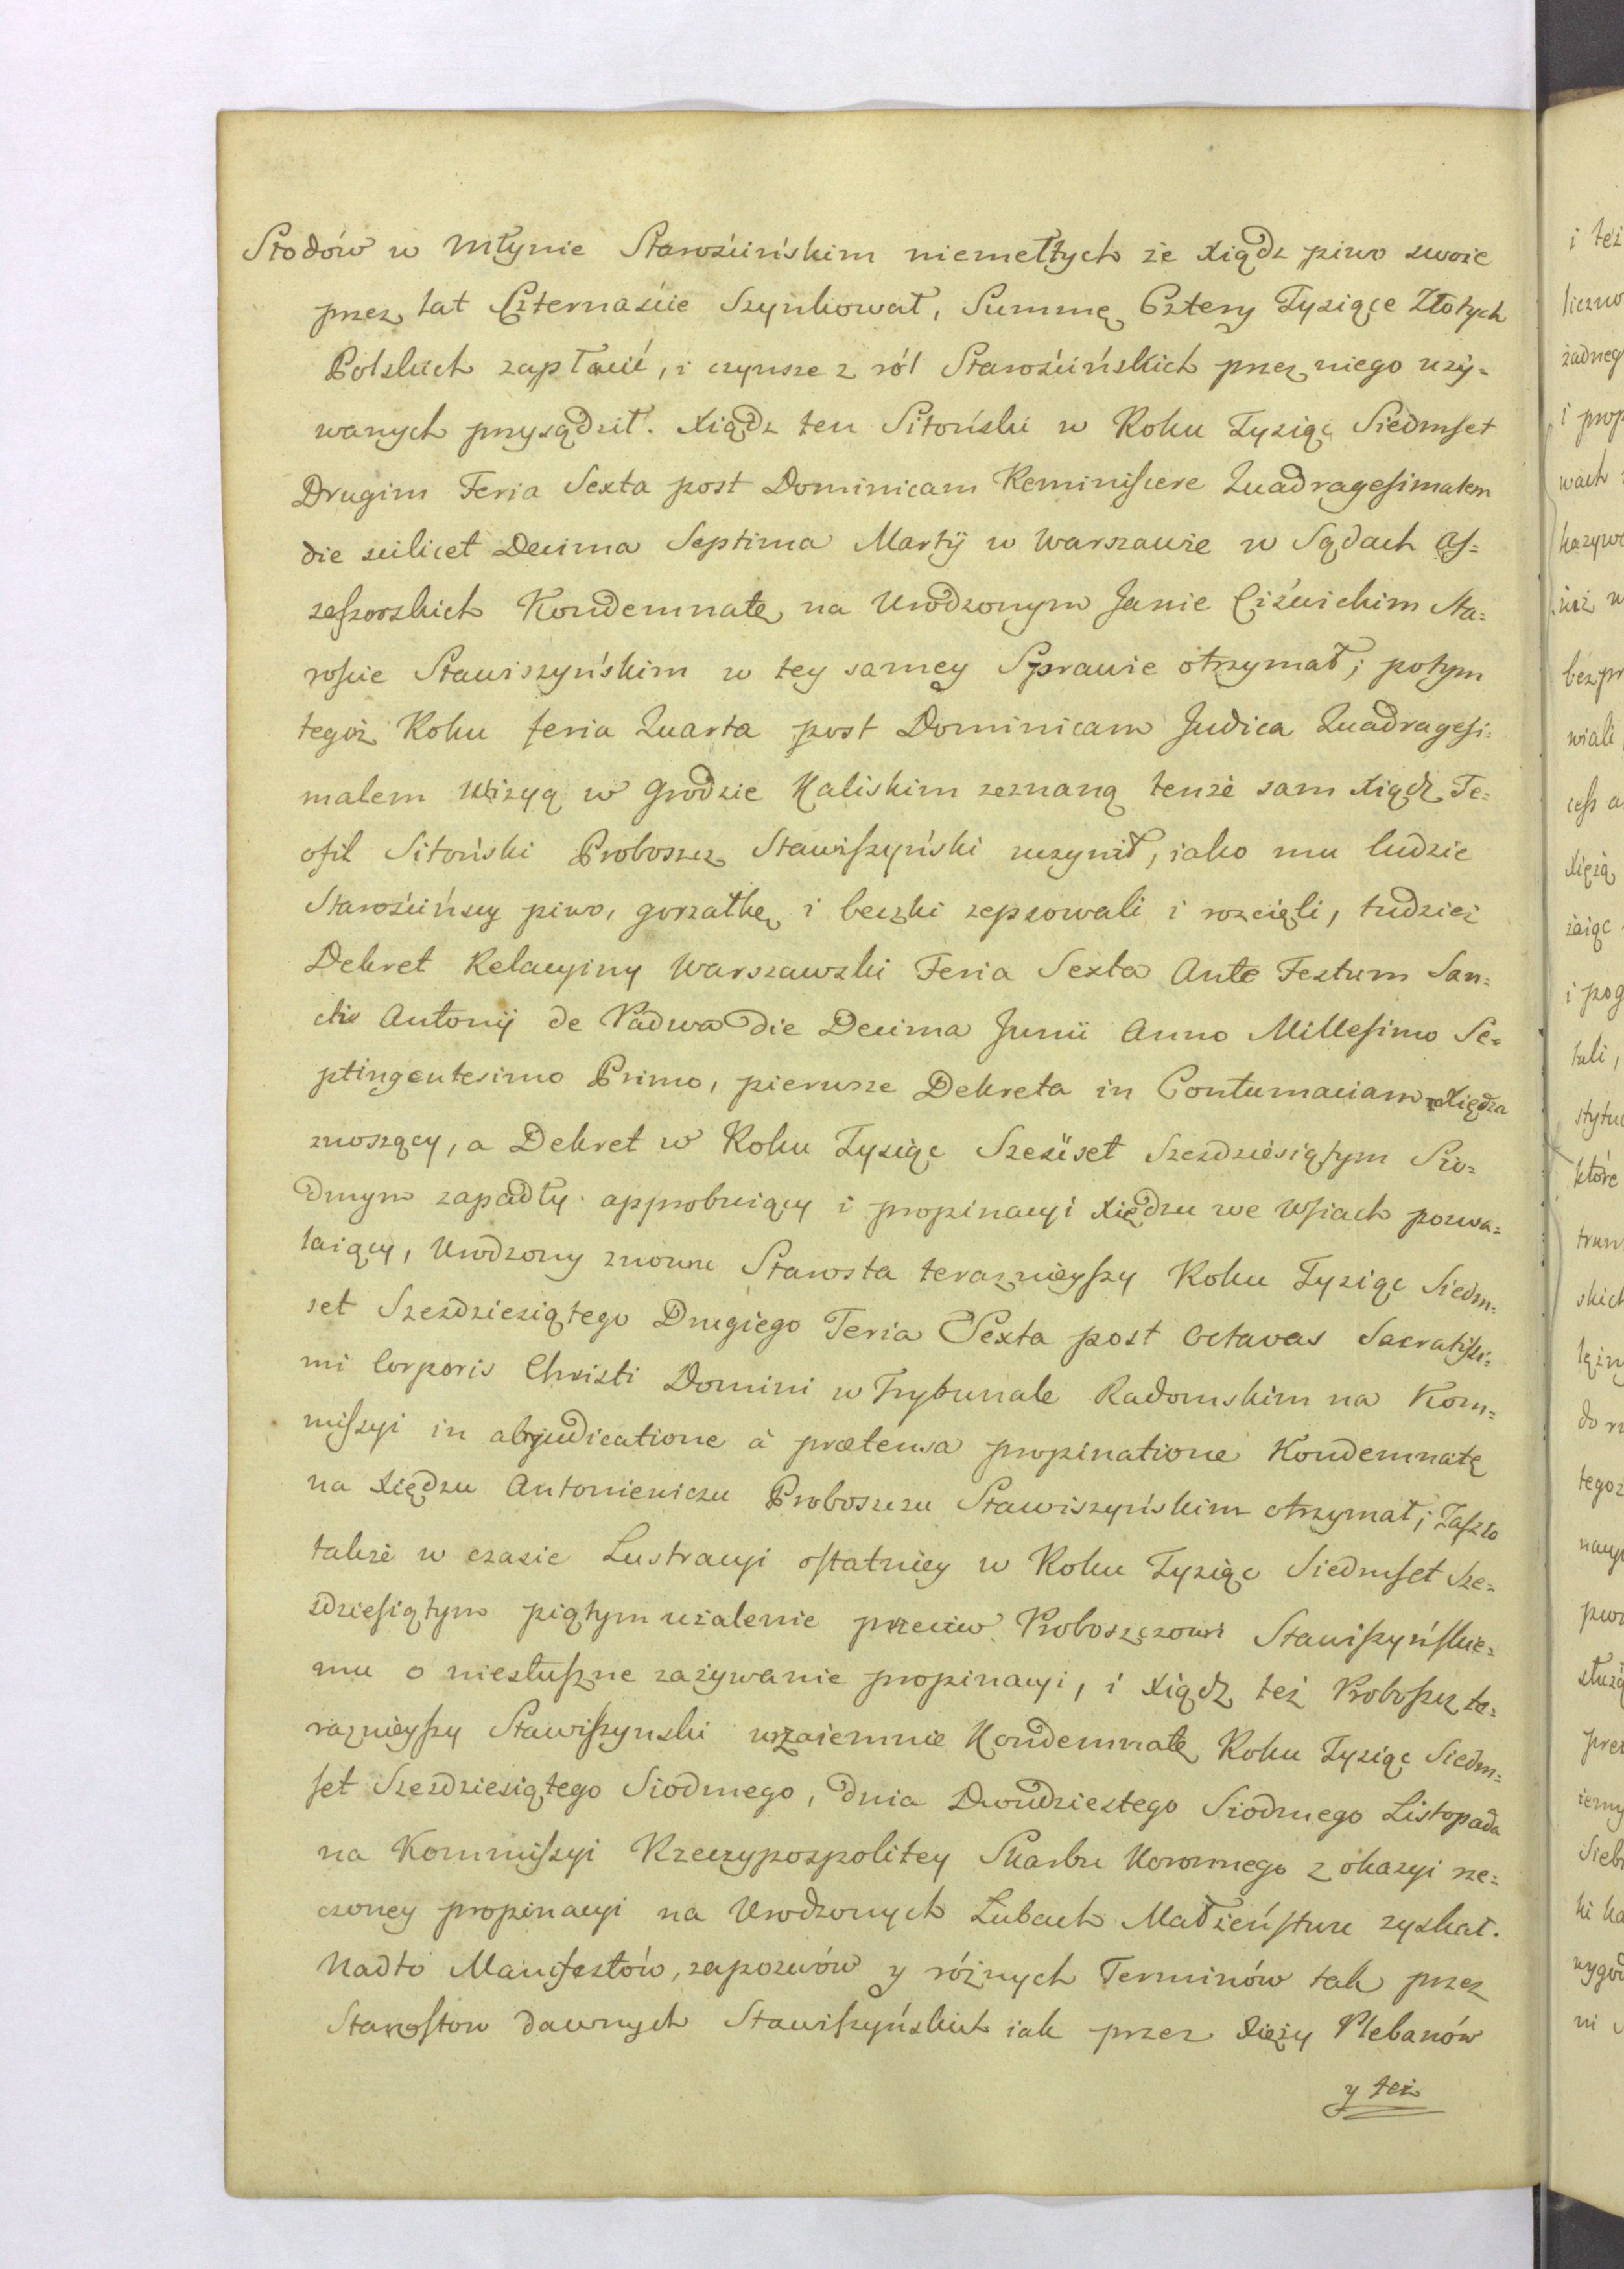 Słodów w Młynie Starościńskim niemełtych że Xiądz piwo swoie
przez lat Czternaście Szynkował, Summę Cztery Tysiące Złotych
Polskich zapłacić, i czynsze z ról Starościńskich przez niego uży=
wanych przysądził. Xiądz ten Sitoński w Roku Tysiąc Siedmset
Drugim Feria Sexta post Dominicam Reminiscere Quadragesimalem
die scilicet Decima Septima Martÿ w Warszawie w Sądach As=
sessorskich Kondemnatę na Urodzonym Janie Ciświckim Sta=
roście Stawiszyńskim w tey samey Sprawie otrzymał; potym
tegoż Roku feria Quarta post Dominicam Judica Quadragesi=
malem Wizyą w Grodzie Kaliskim zeznaną tenże sam Xiądz Te=
ofil Sitoński Proboszcz Stawiszyński uczynił, iako mu ludzie
Starościńscy piwo, gorzałkę i beczki zepsowali i rozcięli, tudzież
Dekret Relacyiny Warszawski Feria Sexta Ante Festum San=
cti Antonÿ de Padwa die Decima Junii Anno Millesimo Se=
ptingentesimo Primo, pierwsze Dekreta in Contumaciam Xiędza
znoszący, a Dekret w Roku Tysiąc Sześćset Sześdziesiątym Sio=
dmym zapadły approbuiący i propinacyi Xiędzu we Wsiach pozwa=
laiący, Urodzony znowu Starosta teraznieyszy Roku Tysiąc Siedm=
set Sześdziesiątego Drugiego Feria Sexta post Octavas Sacratissi=
mi Corporis Christi Domini w Trybunale Radomskim na Kom=
missyi in abjudicatione à prætensa propinatione Kondemnatę
na Xiędzu Antoniewiczu Proboszczu Stawiszyńskim otrzymał; Zaszło
także w czasie Lustracyi ostatniey w Roku Tysiąc Siedmset Sze=
śdziesiątym piątym użalenie przeciw Proboszczowi Stawiszyńskie=
mu o niesłuszne zażywanie propinacyi, i Xiądz też Proboszcz te=
raznieyszy Stawiszynski wzaiemnie Kondemnatę Roku Tysiąc Siedm=
set Sześdziesiątego Siodmego, dnia Dwudziestego Siodmego Listopada
na Kommissyi Rzeczypospolitey Skarbu Koronnego z okazyi rze=
czoney propinacyi na Urodzonych Łubach Małżeństwu zyskał.
Nadto Manifestów, zapozwów y różnych Terminów tak przez
Starostow dawnych Stawiszyńskich iak przez Xięży Plebanów
y też